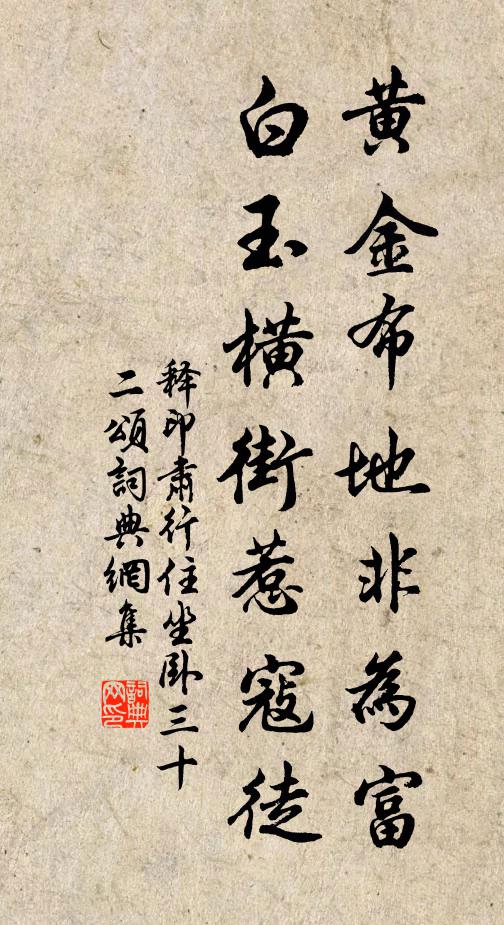 黄金布地非為富
白玉橫街惹寇徒
释印肃行住坐卧三十
二頌詞典網集
詞典網印